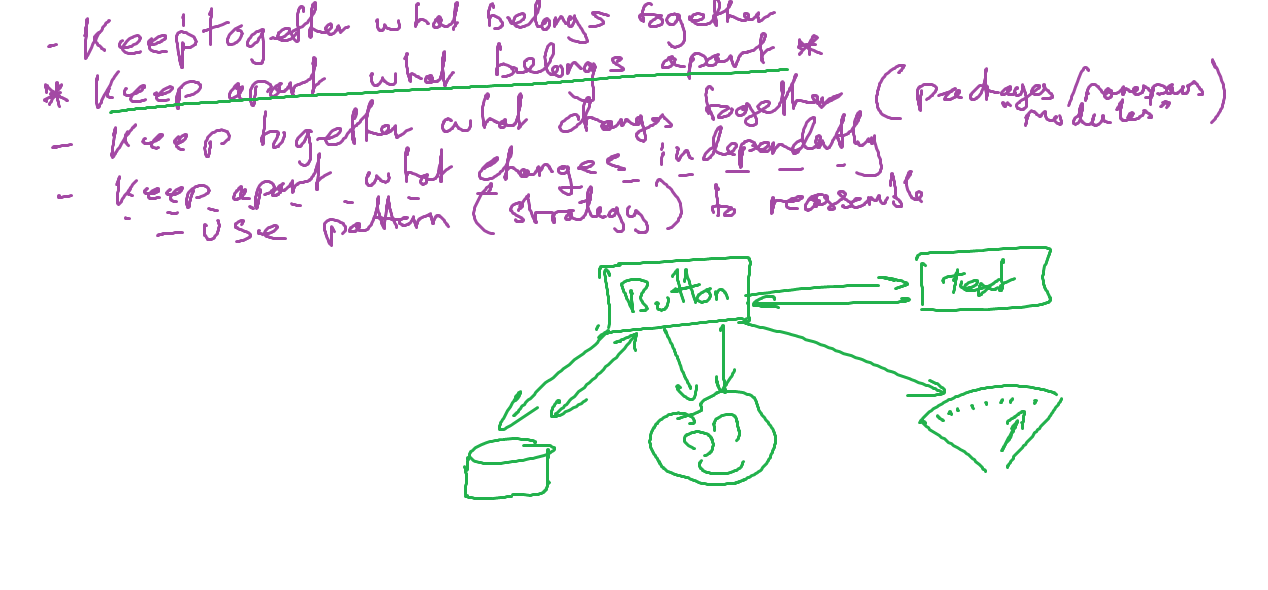 - Keep together what belongs together
* Keep apart what belongs apart *
- Keep together what changes together (packages/namespaces
"modules")
- Keep apart what changes independantly
- Use pattern (strategy) to reassemble
Button
text